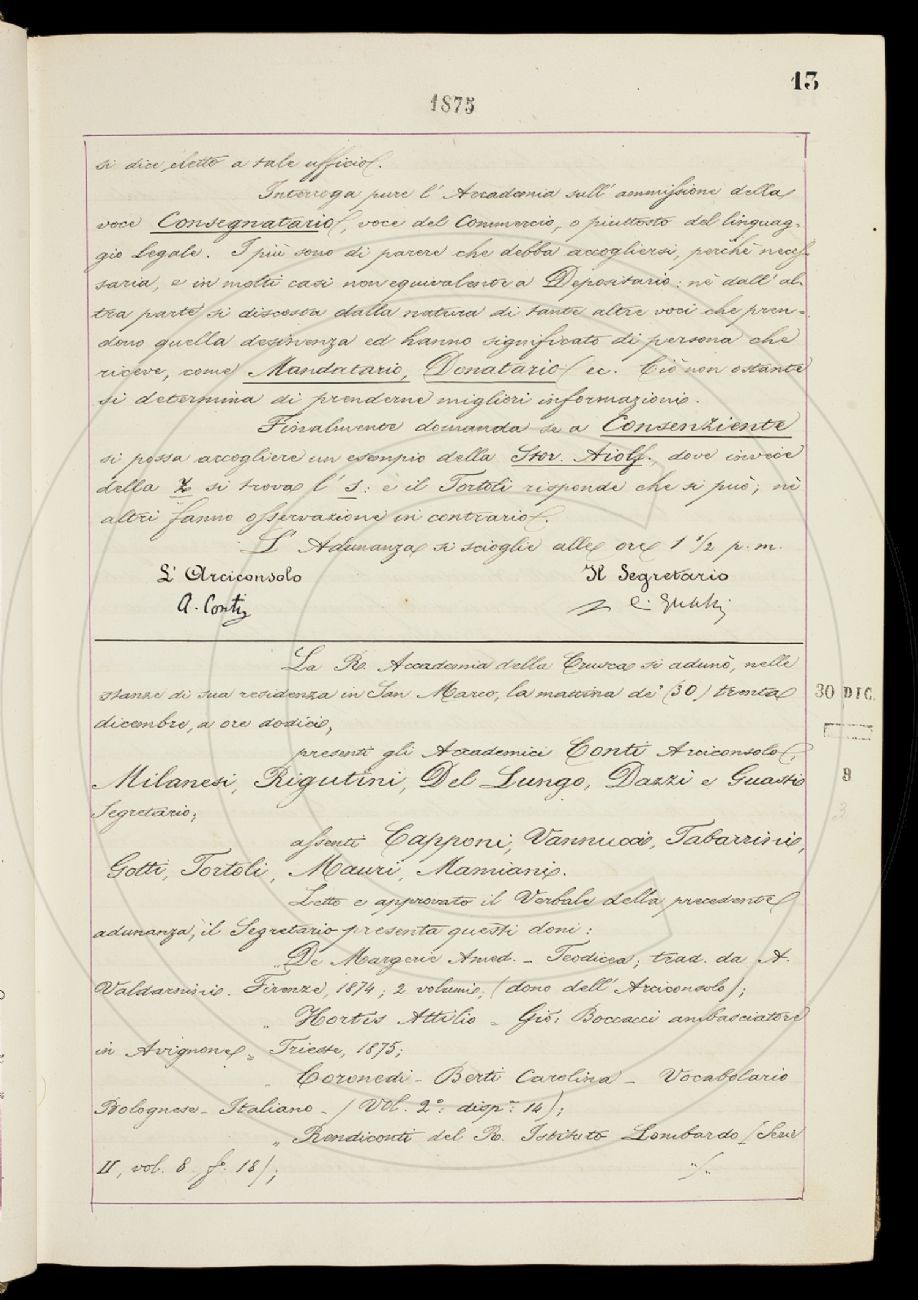 13
1875
si dice eletto a tale ufficio.
Interroga pure l' Accademia sull' ammissione della
voce Consegnatario, voce del Commercio, o piuttosto del linguag-
gio Legale. I più sono di parere che debba accogliersi, perchè neces-
saria, e in molti casi non equivalente a Depositario: nè dall' al-
tra parte si discosta dalla natura di tante altre voci che pren-
dono quella desinenza ed hanno significato di persona che
riceve, come Mandatario, Donatario ec. Ciò non ostante
si determina di prenderne migliori informazioni.
Finalmente domanda se a Consenziente
si possa accogliere un esempio della Stor. Aiolf., dove invece
della z si trova l' s: e il Tortoli risponde che si può; nè
altri fanno osservazione in contrario.
L' Adunanza si scioglie alle ore 1 1/2 p. m.
L' Arciconsolo
Il Segretario
A. Conti
C. Guasti
La R. Accademia della Crusca si adunò, nelle
stanze di sua residenza in San Marco, la mattina de' (30) trenta
30 DIC.
dicembre, a ore dodici,
presenti gli Accademici Conti Arciconsolo,
Milanesi, Rigutini, Del Lungo, Dazzi e Guasti
Segretario;
assenti Capponi, Vannucci, Tabarrini,
Gotti, Tortoli, Mauri, Mamiani.
Letto e approvato il Verbale della precedente
adunanza, il Segretario presenta questi doni:
„ De Margerie Amed. - Teodicea; trad. da A.
Valdarnini. Firenze, 1874; 2 volumi; (dono dell' Arciconsolo);
„ Hortis Attilio - Gio: Boccacci ambasciatore
in Avignone - Trieste, 1875;
„ Coronedi - Berti Carolina - Vocabolario
Bolognese - Italiano - (Vol. 2°: disp.ª 14);
„ Rendiconti del R. Istituto Lombardo (Serie
II, vol. 8, f. 18);